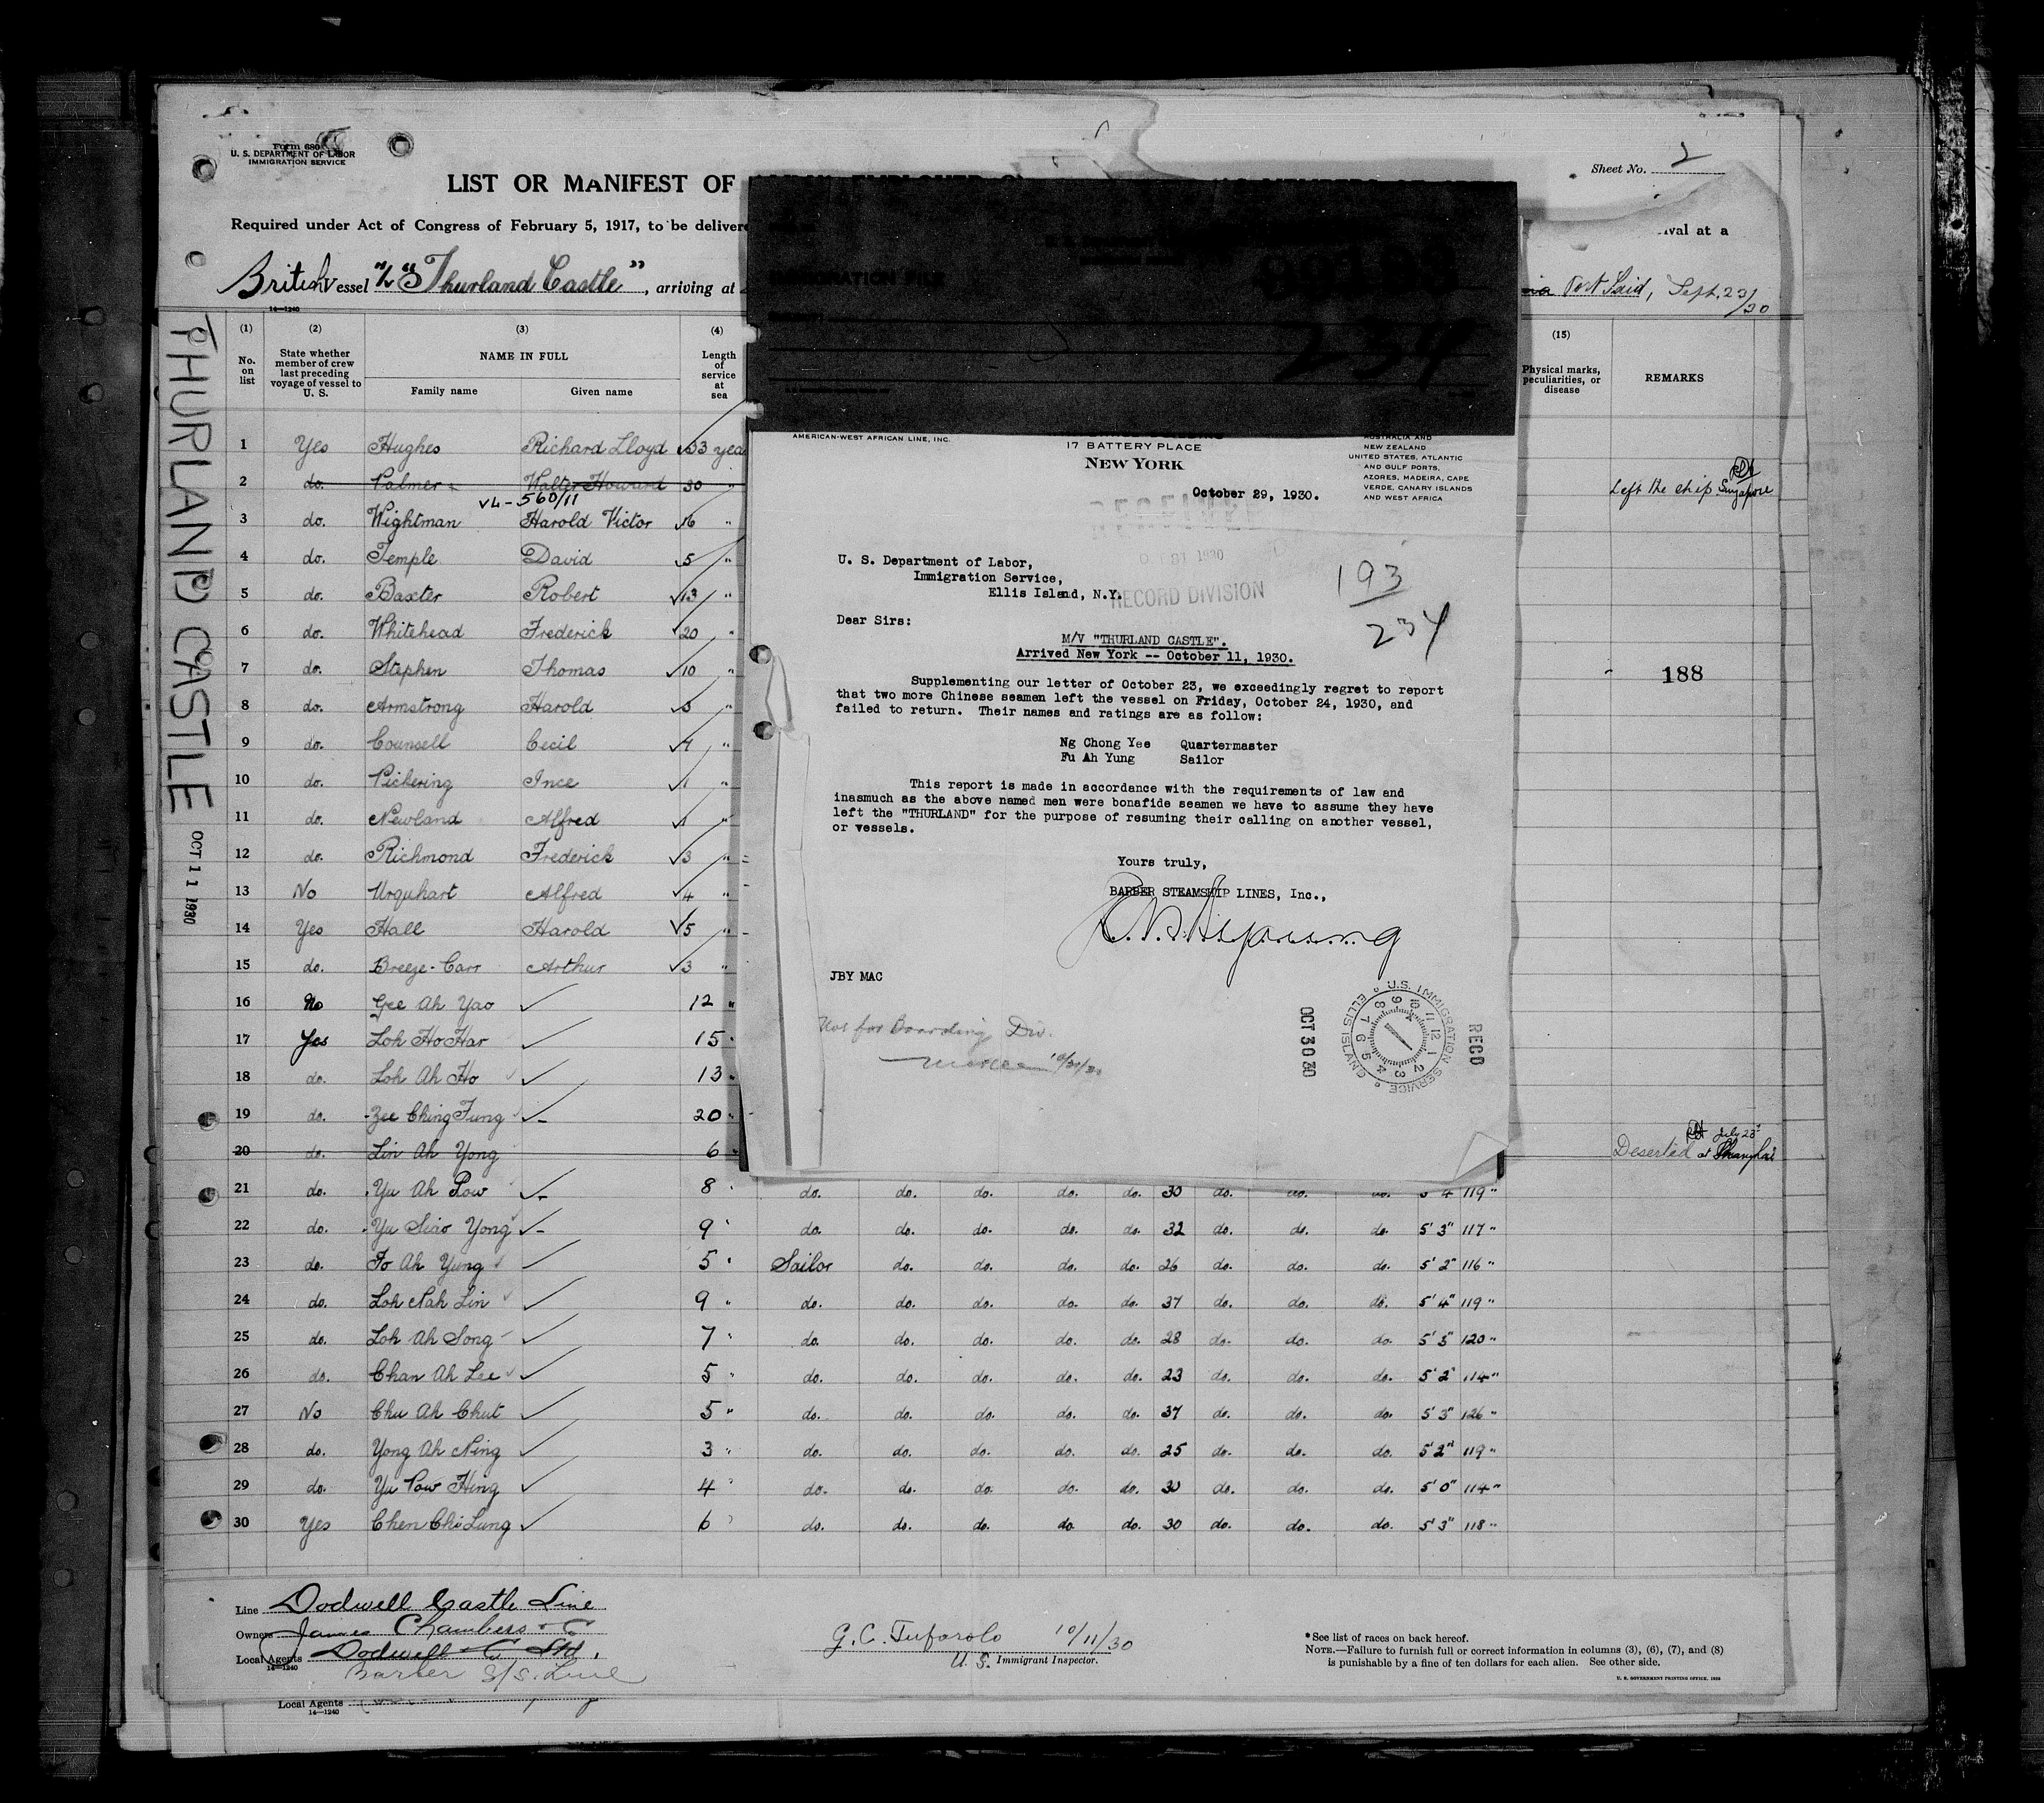 Form 680
U. S. DEPARTMENT OF LABOR
IMMIGRATION SERVICE
Sheet No. 2
LIST OR MANIFEST OF
Required under Act of Congress of February 5, 1917, to be delivere
ival at a
British Vessel "Thurland Castle", arriving at
via Port Said, Sept. 23/30
14—1240
THURLAND CASTLE OCT 11 1930
(1) (2) (3) (4) (15)
No. on list
State whether member of crew last preceding voyage of vessel to U. S.
NAME IN FULL
Family name Given name
Length of service at sea
Physical marks, peculiarities, or disease
REMARKS
1 Yes Hughes Richard Lloyd 33 yea
2 do. Palmer Walter Howard 30 " Left the ship Singapore
VL-560/11
3 do. Wightman Harold Victor 16 "
4 do. Temple David 5 "
5 do. Baxter Robert 13 "
6 do. Whitehead Frederick 20 "
7 do. Stephen Thomas 10 " 188
8 do. Armstrong Harold 3 "
9 do. Counsell Cecil 4 "
10 do. Pickering Ince 1 "
11 do. Newland Alfred 1 "
12 do. Richmond Frederick 3 "
13 No Urquhart Alfred 4 "
14 Yes Hall Harold 5 "
15 do. Breeze-Carr Arthur 3 "
16 No Gee Ah Yao 12 "
17 Yes Loh Ho Har 15 "
18 do. Loh Ah Ho 13 "
19 do. Zee Ching Fung 20 "
20 do. Lin Ah Yong 6 " Deserted at Shanghai July 23rd
21 do. Yu Ah Pow 8 " do. do. do. do. do. 30 do. do. do. 5' 4 119 "
22 do. Yu Siao Yong 9 " do. do. do. do. do. 32 do. do. do. 5' 3" 117 "
23 do. Fo Ah Yung 5 " Sailor do. do. do. do. 26 do. do. do. 5' 2" 116 "
24 do. Loh Nah Lin 9 " do. do. do. do. do. 37 do. do. do. 5' 4" 119 "
25 do. Loh Ah Song 7 " do. do. do. do. do. 28 do. do. do. 5' 3" 120 "
26 do. Chan Ah Lee 5 " do. do. do. do. do. 23 do. do. do. 5' 2" 114 "
27 No Chu Ah Chut 5 " do. do. do. do. do. 37 do. do. do. 5' 3" 126 "
28 do. Yong Ah Ning 3 " do. do. do. do. do. 25 do. do. do. 5' 2" 119 "
29 do. Yu Pow Hing 4 " do. do. do. do. do. 30 do. do. do. 5' 0" 114 "
30 Yes Chen Chi Lung 6 " do. do. do. do. do. 30 do. do. do. 5' 3" 118 "
234
AMERICAN-WEST AFRICAN LINE, INC.
17 BATTERY PLACE
NEW YORK
AUSTRALIA AND
NEW ZEALAND
UNITED STATES, ATLANTIC
AND GULF PORTS,
AZORES, MADEIRA, CAPE
VERDE, CANARY ISLANDS
AND WEST AFRICA
October 29, 1930.
RECEIVED
1930
RECORD DIVISION
U. S. Department of Labor,
Immigration Service,
Ellis Island, N.Y.
193
234
Dear Sirs:
M/V "THURLAND CASTLE".
Arrived New York -- October 11, 1930.
Supplementing our letter of October 23, we exceedingly regret to report
that two more Chinese seamen left the vessel on Friday, October 24, 1930, and
failed to return. Their names and ratings are as follow:
Ng Chong Yee Quartermaster
Fu Ah Yung Sailor
This report is made in accordance with the requirements of law and
inasmuch as the above named men were bonafide seamen we have to assume they have
left the "THURLAND" for the purpose of resuming their calling on another vessel,
or vessels.
Yours truly,
BARBER STEAMSHIP LINES, Inc.,
JBY MAC
for Boarding Div.
OCT 30 30
U.S. IMMIGRATION SERVICE ELLIS ISLAND
12 1 2 3 4 5 6 7 8 9 10 11
RECD
Line Dodwell Castle Line
Owners James Chambers & Co
Local Agents Dodwell & Co Ltd.
14—1240
Barber S/S. Line
G. C. Tuforolo 10/11/30
U. S. Immigrant Inspector.
* See list of races on back hereof.
NOTE.—Failure to furnish full or correct information in columns (3), (6), (7), and (8)
is punishable by a fine of ten dollars for each alien. See other side.
U. S. GOVERNMENT PRINTING OFFICE, 1928
Local Agents
14—1240